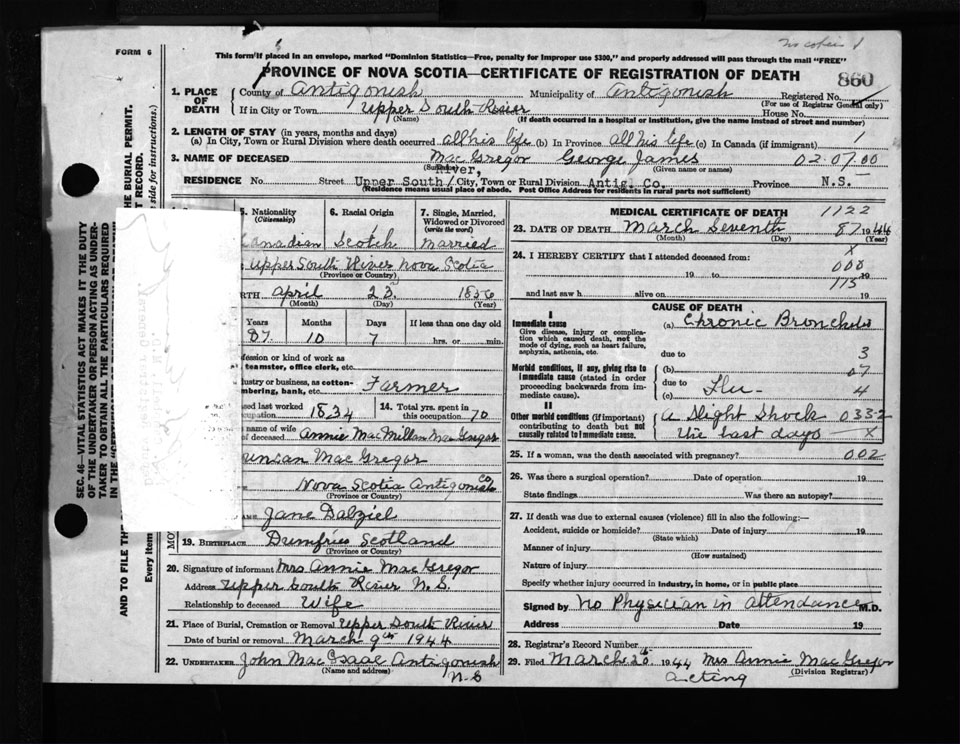 FORM 6
This form if placed in an envelope, marked "Dominion Statistics—Free, penalty for improper use $300," and properly addressed will pass through the mail "FREE"
PROVINCE OF NOVA SCOTIA—CERTIFICATE OF REGISTRATION OF DEATH
860
1. PLACE OF DEATH County of Antigonish Municipality of Antigonish Registered No.
(For use of Registrar General only)
If in City or Town Upper South River House No.
(Name) (If death occurred in a hospital or institution, give the name instead of street and number)
2. LENGTH OF STAY (in years, months and days)
(a) In City, Town or Rural Division where death occurred all his life (b) In Province all his life (c) In Canada (if immigrant) 1
3. NAME OF DECEASED Mac Gregor George James 02.07.00
(Surname) (Given name or names)
River,
RESIDENCE No. Street Upper South / City, Town or Rural Division Antig. Co. Province N.S.
(Residence means usual place of abode. Post Office Address for residents in rural parts not sufficient)
5. Nationality 6. Racial Origin 7. Single, Married,
(Citizenship) Widowed or Divorced
(write the word)
Canadian Scotch Married
Upper South River Nova Scotia
(Province or Country)
April 23 1856
(Month) (Day) (Year)
Years Months Days If less than one day old
87 10 7 hrs. or min.
fession or kind of work as
teamster, office clerk, etc.
ustry or business, as cotton-
mbering, bank, etc. Farmer
ased last worked 1834 14. Total yrs. spent in
cupation this occupation 70
name of wife
of deceased Annie MacMillan Mac Gregor
uncan Mac Gregor
Nova Scotia Antigonish Co
(Province or Country)
Jane Dalziel
19. BIRTHPLACE Dumfries Scotland
(Province or Country)
20. Signature of informant Mrs Annie Mac Gregor
Address Upper South River N.S.
Relationship to deceased Wife
21. Place of Burial, Cremation or Removal Upper South River
Date of burial or removal March 9th 1944
22. UNDERTAKER John Mac Isaac Antigonish
(Name and address) N.S
MEDICAL CERTIFICATE OF DEATH 1122
23. DATE OF DEATH March Seventh 8/ 1944
(Month) (Day) (Year)
24. I HEREBY CERTIFY that I attended deceased from: x
008
19 to 19
and last saw h alive on 19
CAUSE OF DEATH
I
Immediate cause (a) Chronic Bronchitis
Give disease, injury or complication which caused death, not the mode of dying, such as heart failure, asphyxia, asthenia, etc.
due to 3
Morbid conditions, if any, giving rise to immediate cause (stated in order proceeding backwards from immediate cause). (b) 07
due to Flu 4
(c)
II
Other morbid conditions (if important) contributing to death but not causally related to immediate cause. A Slight Shock 033-2
the last days x
25. If a woman, was the death associated with pregnancy? 002
26. Was there a surgical operation? Date of operation 19
State findings Was there an autopsy?
27. If death was due to external causes (violence) fill in also the following:—
Accident, suicide or homicide? Date of injury 19
(State which)
Manner of injury
(How sustained)
Nature of injury
Specify whether injury occurred in industry, in home, or in public place
Signed by No Physician in attendance M.D.
Address Date 19
28. Registrar's Record Number
29. Filed March 1944 Mrs Annie Mac Gregor
acting (Division Registrar)
SEC. 46—VITAL STATISTICS ACT MAKES IT THE DUTY
OF THE UNDERTAKER OR PERSON ACTING AS UNDER-
TAKER TO OBTAIN ALL THE PARTICULARS REQUIRED
AND TO FILE
Every item